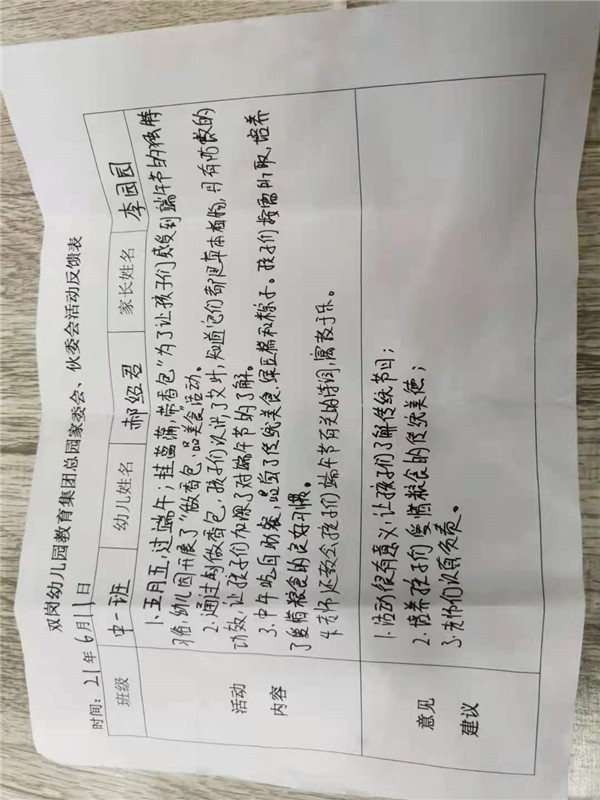 双岗幼儿园教育集团总园家委会、伙委会活动反馈表
时间：21年6月11日
班级 中一班 幼儿姓名 郝绍君 家长姓名 李园园
活动
内容
1.五月五，过端午；挂菖蒲，带香包"为了让孩子们感受到端午节的独特
习俗，幼儿园开展了"做香包，品美食活动。
2.通过制做香包，孩子们认识了艾叶，知道它们都是草本植物，具有防蚊的
功效，让孩子们加深了对端午节的了解。
3.中午吃自助餐，品尝了传统美食绿豆糕和粽子。孩子们按需所取，培养
了爱惜粮食的良好习惯。
4.老师还教会孩子们端午节有关的诗词，寓教于乐。
意见
建议
1.活动很有意义，让孩子们了解传统节日；
2.培养孩子们爱惜粮食的传统美德；
3.老师们认真负责。